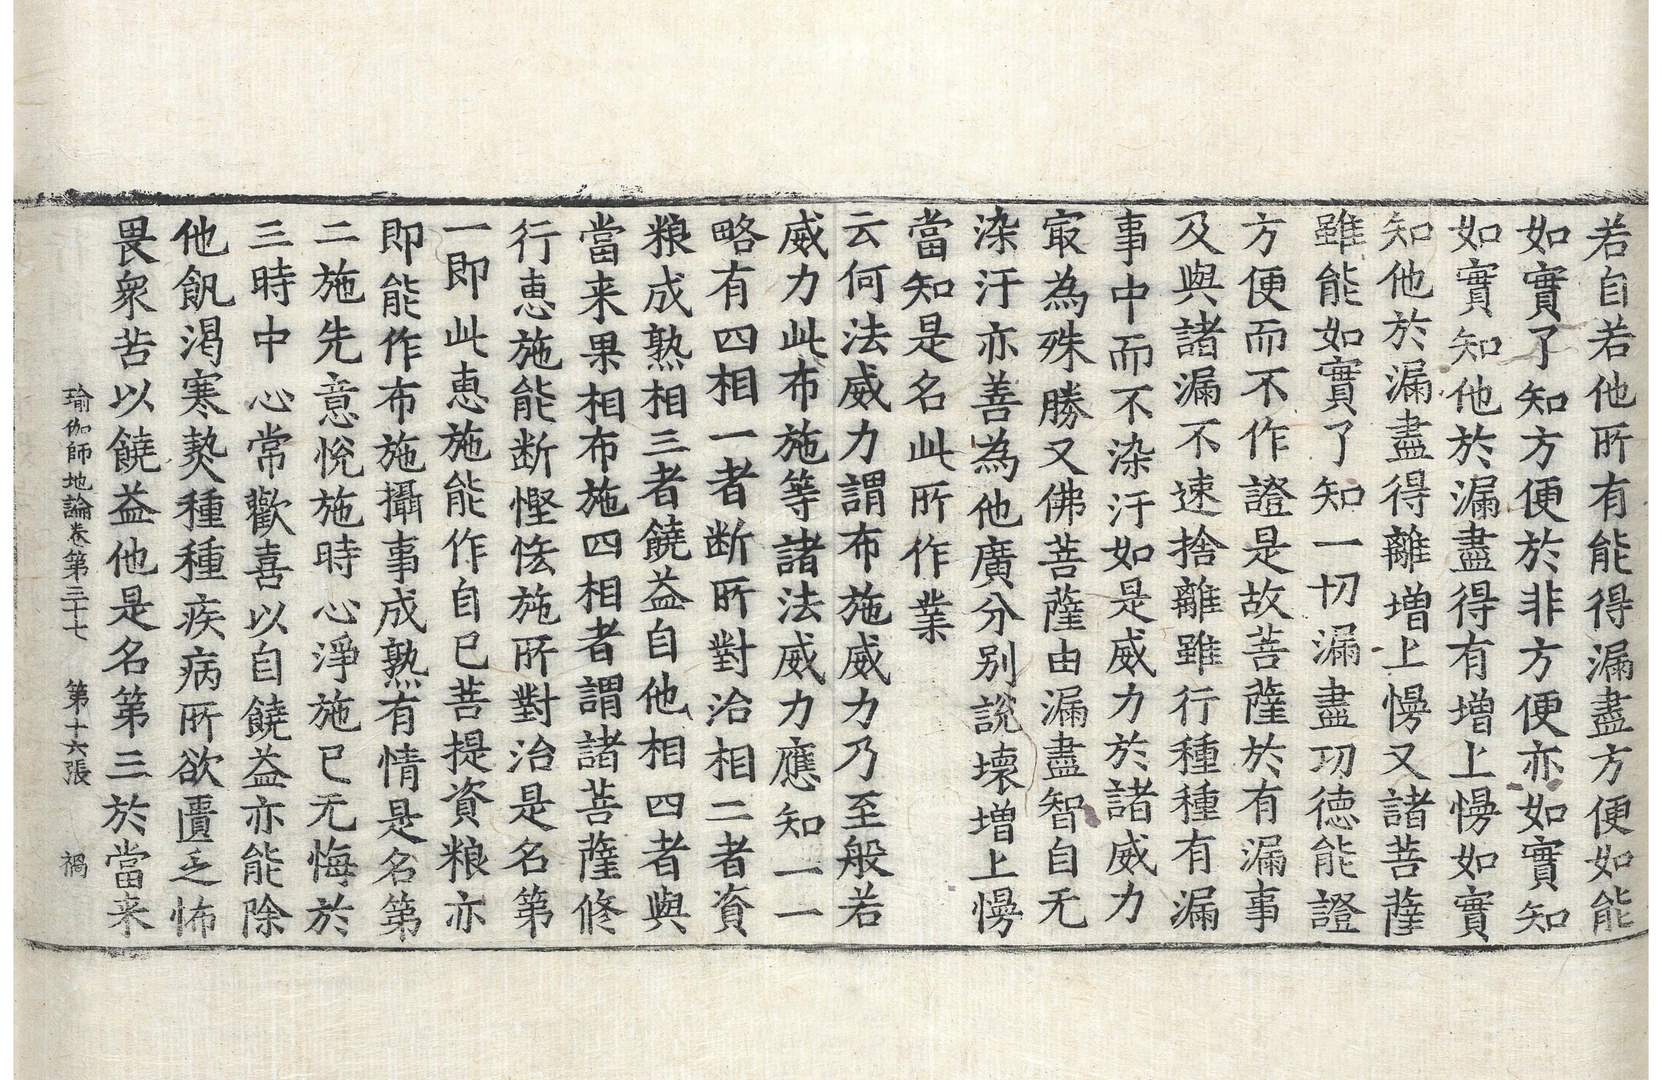 若自若他所有能得漏盡方便如能
如實了知方便於非方便亦如實知
如實知他於漏盡得有增上慢如實
知他於漏盡得離增上慢又諸菩薩
雖能如實了知一切漏盡功德能證
方便而不作證是故菩薩於有漏事
及與諸漏不速捨離雖行種種有漏
事中而不染汙如是威力於諸威力
㝡為殊勝又佛菩薩由漏盡智自无
染汙亦善為他廣分别說壞增上慢
當知是名此所作業
云何法威力謂布施威力乃至般若
威力此布施等諸法威力應知一一
略有四相一者断所對治相二者資
粮成熟相三者饒益自他相四者與
當来果相布施四相者謂諸菩薩修
行恵施能断慳悋施所對治是名第
一即此恵施能作自己菩提資粮亦
即能作布施攝事成熟有情是名第
二施先意悅施時心淨施已无悔於
三時中心常歡喜以自饒益亦能除
他飢渇寒𤍠種種疾病所欲匱乏怖
畏衆苦以饒益他是名第三於當来
瑜伽師地論卷第三十七 第十六張 禍